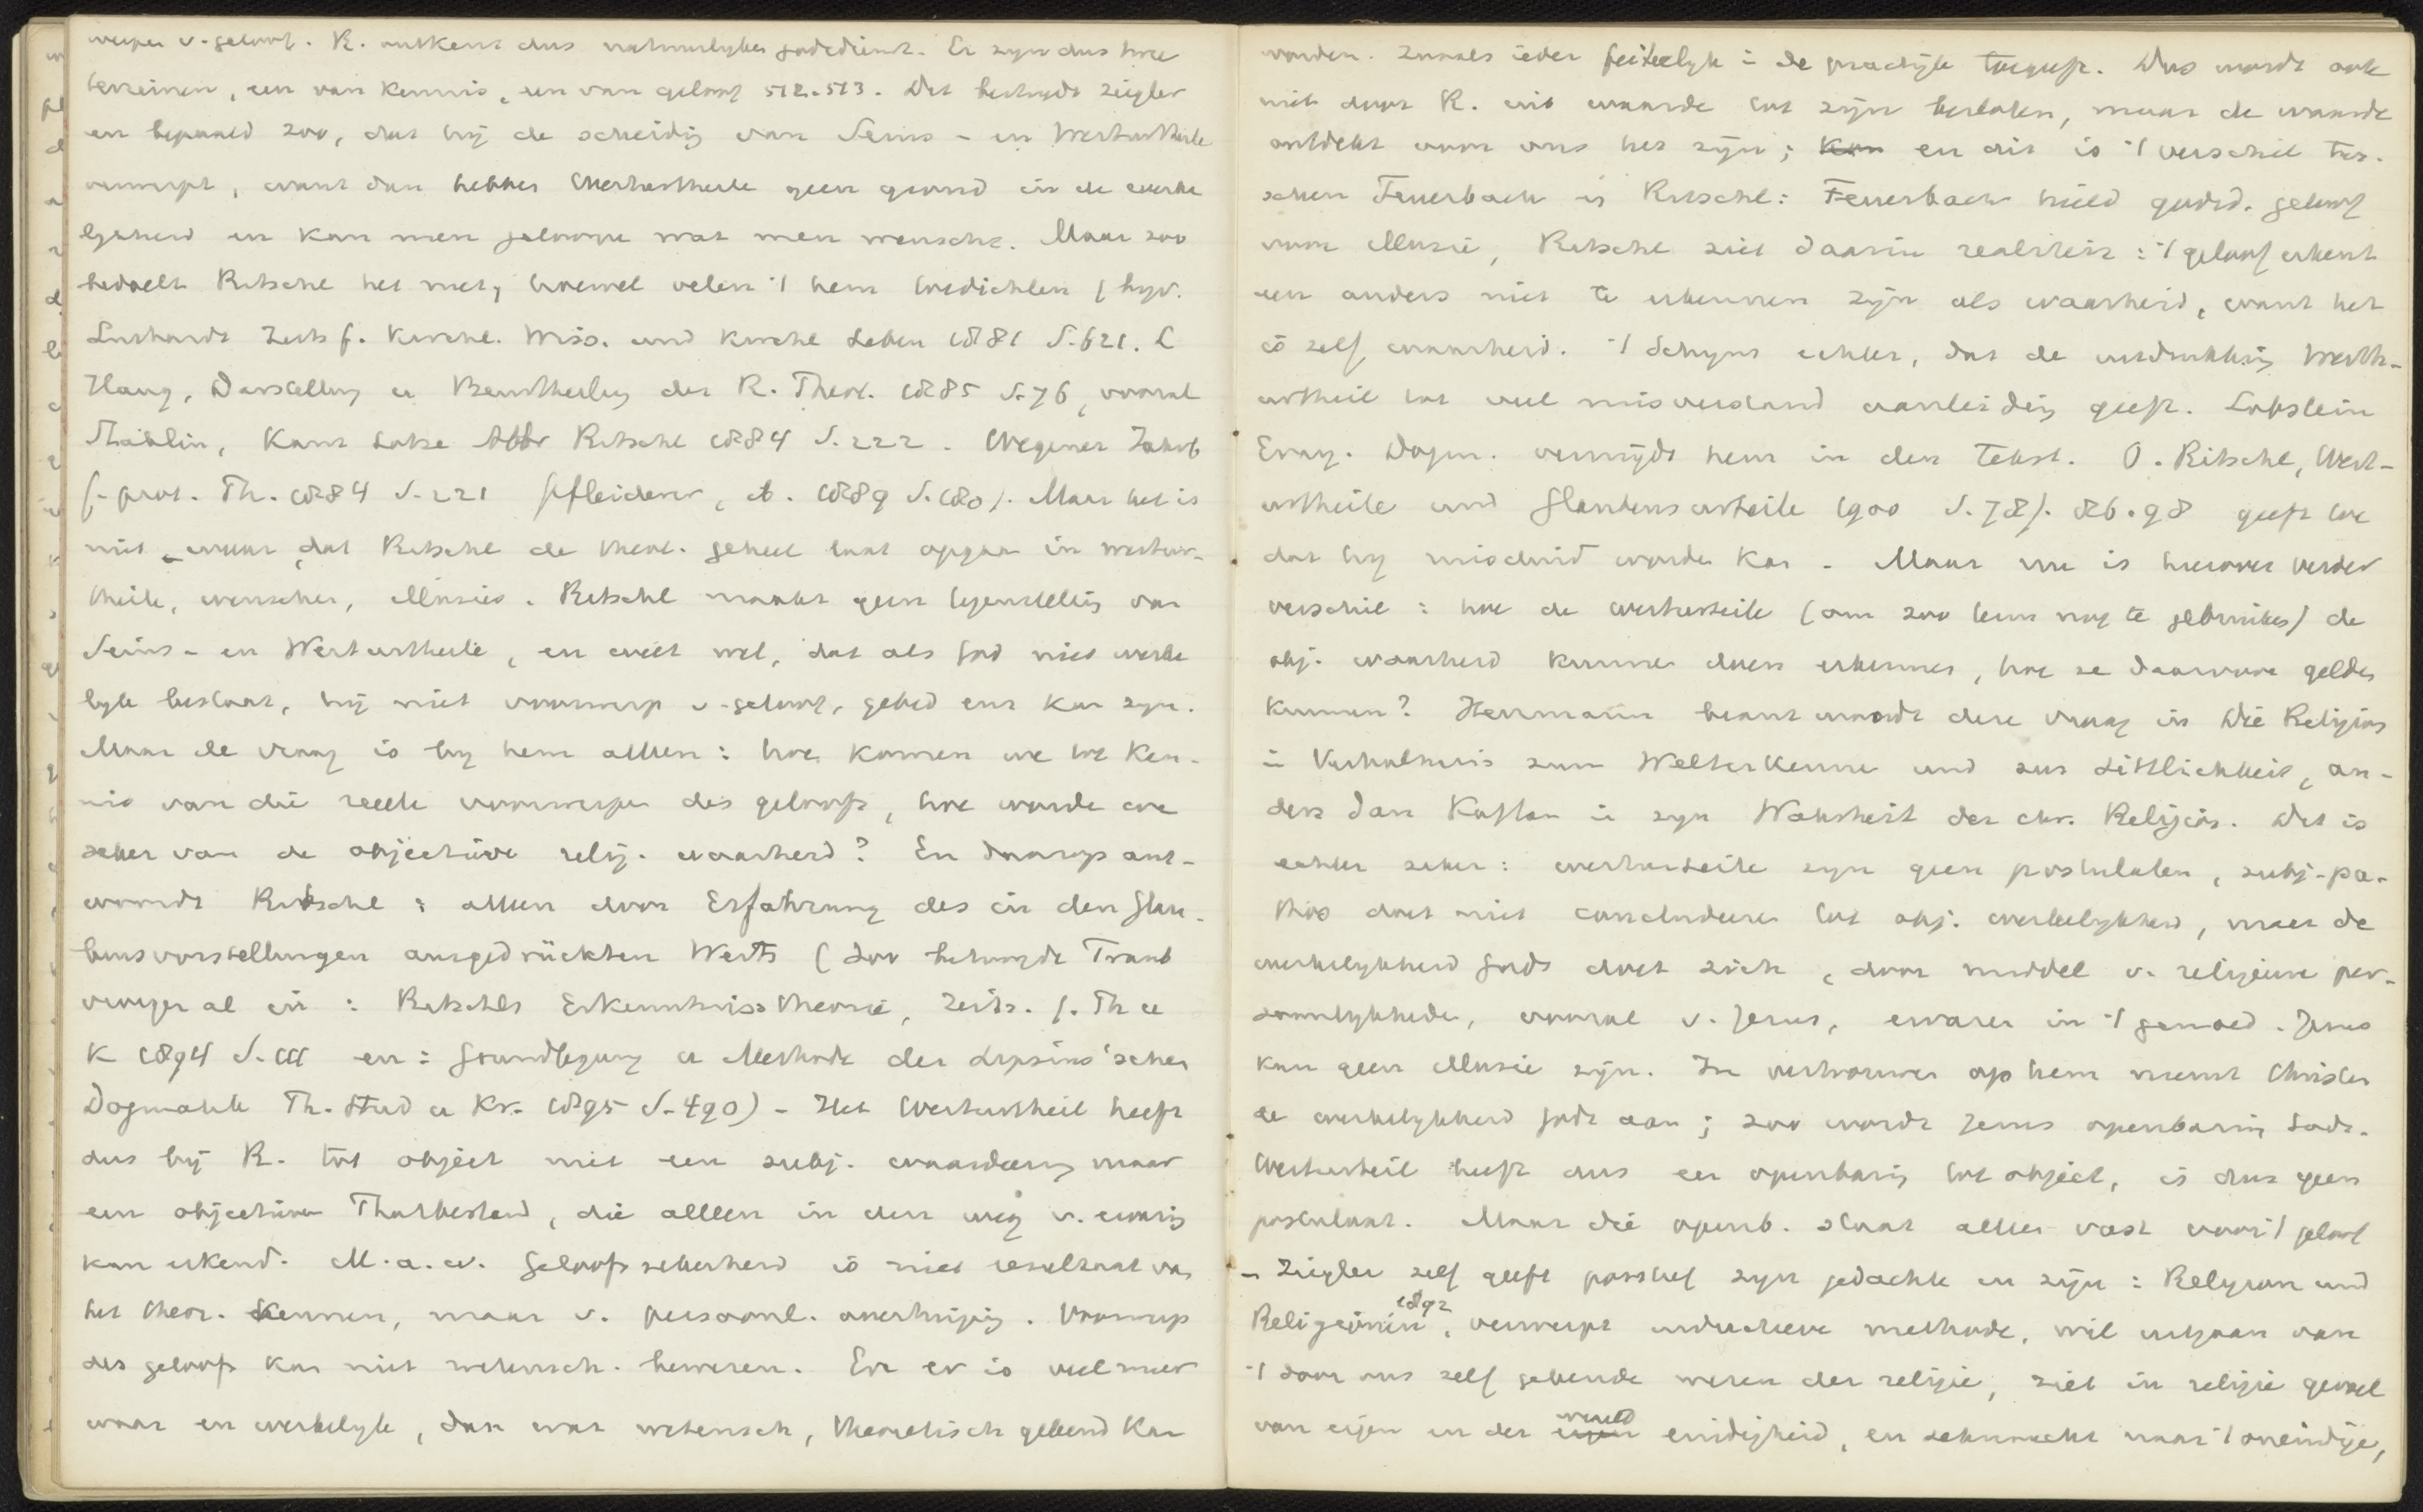 werpen v. geloof. R. ontkent dus natuurlyke godsdienst. Er zyn dus twee
terreinen, een van kennis, een van geloof 512.513. Dit bestrydt Ziegler
en bepaald zoo, dat hij de scheidig van Seins- en Werturtheile
verwerpt, want dan hebben Werturtheile geen grond in de werke
lykheid en kan men gelooven wat men wenscht. Maar zoo
bedoelt Ritschl het niet, hoewel velen 't hem toedichten (byv.
Luthardt Zeits f. Kirchl. Wiss. und Kirchl Leben 1881 S.621. L
Haug, Darstellung u Beurtheilung der R. Theol. 1885 S.76, vooral
Stählin, Kant Lotze Albr Ritschl 1884 S.222. Wegener Jahrb
f. prot. Th. 1884 S.221 Pfleiderer, ib. 1889 S.180). Maar het is
niet waar, dat Ritschl de theol. geheel laat opgaan in wertur-
theile, wenschen, illusies. Ritschl maakt geen tegenstellig van
Seins- en Werturtheile, en weet wel, dat als God niet werke
lyk bestaat, hij niet voorwerp v. geloof, gebed enz kan zyn.
Maar de vraag is by hem alleen: hoe komen we tot Ken-
nis van die reeele voorwerpen des geloofs, hoe worden we
zeker van de objectieve relig. waarheid? En daarop ant-
woordt Ritschl: alleen door Erfahrung des in den Glau-
bensvorstellungen ausgedrückten Werts (Zoo betoogde Traub
vroeger al in: Ritschls Erkenntnisstheorie, Zeits. f. Th u
K 1894 S.111 en: Grundlegung u Methode der Lipsius'schen
Dogmatik Th. Stud u Kr. 1895 S.490) - Het Werturtheil heeft
dus bij R. tot object niet een subj. waardeering maar
een objectieven Thatbestand, die alleen in den weg v. ervarig
kan erkend. M.a.w. Geloofszekerheid is niet resultaat van
het theor. Kennen, maar v. persoonl. overtuigig. Voorwerp
des geloofs kan niet wetensch. bewezen. En er is veel meer
waar en werkelyk, dan wat wetensch, theoretisch gekend kan
worden. Zooals ieder feitelyk in de practijk toegeeft. Dus wordt ook
niet door R. uit waarde tot zyn besloten, maar de waarde
ontdekt voor ons het zijn; kan en dit is 't verschil tus-
schen Feuerbach en Ritschl: Feuerbach hield godsd. geloof
voor illusie, Ritschl ziet daarin realiteit: 't geloof erkent
een anders niet te erkennen zijn als waarheid, want het
is zelf waarheid. 't Schynt echter, dat de uitdrukking Werth-
urtheil tot veel misverstand aanleidig geeft. Lobstein
Evang. Dogm. vermijdt hem in den Tekst. O. Ritschl, Wert-
urtheile und Glaubensurteile 1900 S.78f. 86.98 geeft toe
dat hy misduid worden kan. Maar nu is hierover verder
verschil: hoe de werturteile (om zoo term nog te gebruiken) de
obj. waarheid kunnen doen erkennen, hoe ze daarvoor gelden
kunnen? Herrmann beantwoordt deze vraag in Die Religion
in Verhältniss zum Welterkennen und zur Sittlichkeit, an-
ders dan Kaftan in zyn Wahrheit der chr. Religion. Dit is
echter zeker: werturteile zyn geen postulaten, subj. pa-
thos doet niet concludeeren tot obj. werkelykheid, maar de
werkelykheid Gods doet zich, door middel v. religieuse per-
soonlykheden, vooral v. Jezus, ervaren in 't gemoed. Jezus
kan geen illusie zijn. In vertrouwen op hem neemt Christen
de werkelykheid Gods aan; zoo wordt Jezus openbaring Gods.
Werturteil heeft dus een openbarig tot object, is dus geen
postulaat. Maar die openb. staat alleen vast voor 't geloof
- Ziegler zelf geeft positief zyn gedachte in zijn: Religion und
Religionen 1892, verwerpt inductieve methode, wil uitgaan van
't door ons zelf gekende wezen der religie, ziet in religie gevoel
van eigen en der eigen wereld eindigheid, en zehnsucht naar 't oneindige,